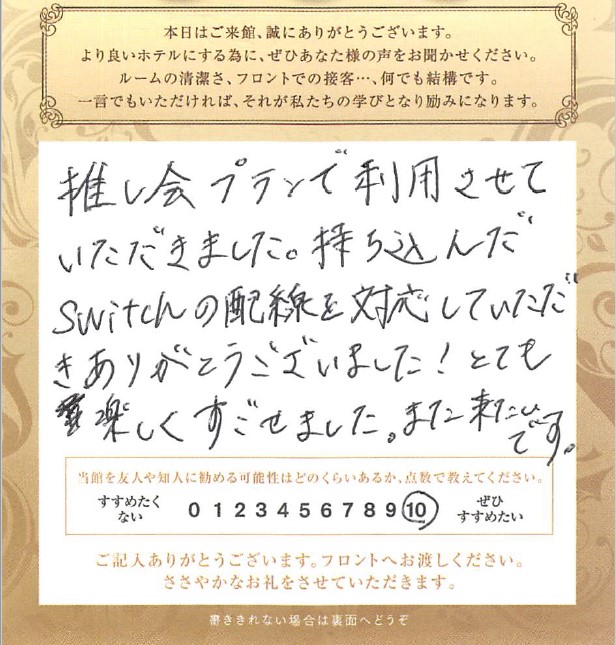 本日はご来館、誠にありがとうございます。
より良いホテルにする為に、ぜひあなた様の声をお聞かせください。
ルームの清潔さ、フロントでの接客…、何でも結構です。
一言でもいただければ、それが私たちの学びとなり励みになります。
推し会プランで利用させて
いただきました。持ち込んだ
Switchの配線を対応していただ
きありがとうございました！とても
楽しくすごせました。また来たい
です。
当館を友人や知人に勧める可能性はどのくらいあるか、点数で教えてください。
すすめたく
ない
0 1 2 3 4 5 6 7 8 9 10
ぜひ
すすめたい
ご記入ありがとうございます。フロントへお渡しください。
ささやかなお礼をさせていただきます。
書ききれない場合は裏面へどうぞ